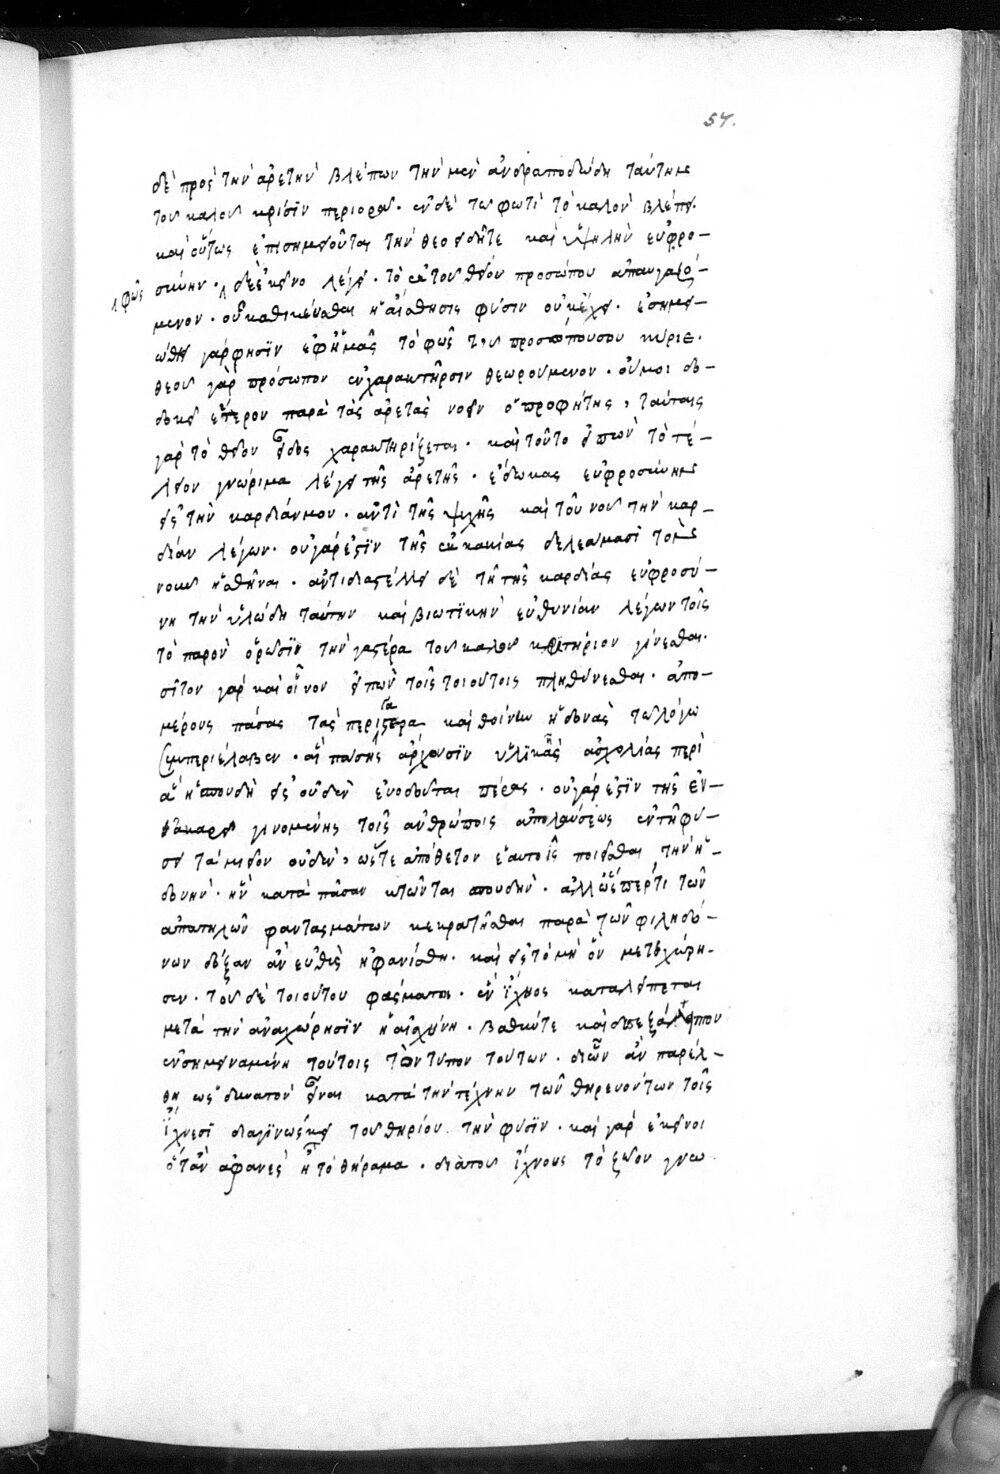 57.
δὲ πρὸς τὴν ἀρετὴν βλέπων τὴν μὲν ἀνδραποδώδη ταύτην
τοῦ καλοῦ κρίσϊν περιορᾶ· ἐν δὲ τῶ φωτὶ τὸ καλὸν βλέπει
καὶ οὕτως ἐπισημειοῦται τὴν θεοειδῆ τε καὶ ὑψηλὴν εὐφρο–
σύνην · δὲ ἐκεῖνο λέγει · τὸ ἐκ τοῦ θείου προσώπου ἀπαυγαζό–
φῶς
μενον · οὗ καθικέσθαι ἡ αἴσθησις φύσιν οὐκ ἔχει · ἐσημει–
ώθη γάρ φησϊν ἐφ' ἡμᾶς τὸ φῶς τοῦ προσώπου σου κύριε·
θεοῦ γὰρ πρόσωπον ἐν χαρακτῆρσιν θεωρούμενον · οὔ μοι δο–
δοκεῖ ἕτερον παρὰ τὰς ἀρετὰς νοεῖν ὁ προφήτης, ταύταις
γὰρ τὸ θεῖον εἶδος χαρακτηρίζεται · καὶ τοῦτο εἰπὼν τὸ τέ–
λειον γνώρισμα λέγει τῆς ἀρετῆς · ἔδωκας εὐφροσύνην
εἰς τὴν καρδίαν μου · ἀντὶ τῆς ψυχῆς καὶ τοῦ νοῦ τὴν καρ–
δίαν λέγων · οὐ γάρ ἐστϊν τῆς ἐκ κακίας δελεάσμασϊ τὸν
νοῦν ἡσθῆναι · ἀντιδιαστέλλει δὲ τῆ τῆς καρδίας εὐφροσύ–
νη τὴν ὑλώδη ταύτην καὶ βιωτϊκὴν εὐθυνίαν λέγων τοῖς
τὸ παρὸν ὁρῶσϊν τὴν γαστέρα τοῦ καλοῦ κριτήριον γίνεσθαι·
σῖτον γὰρ καὶ οἶνον εἰπὼν τοῖς τοιούτοις πληθύνεσθαι · ἀπο–
μέρους πάσας τὰς περὶ γαστέρα καὶ θοίνην ἡδονὰς τῶ λόγω
συμπεριέλαβεν · αἳ πάσης ἄρχουσϊν ὑλϊκῆς ἀσχολίας περὶ
ἃ ἡ σπουδὴ εἰς οὐδὲν εὐοδοῦται πέρας · οὐ γάρ ἐστϊν τῆς ἐν–
γινομένης τοῖς ἀνθρώποις ἀπολαύσεως ἐν τῆ φύ–
σει ταμιεῖον οὐδὲν, ὥστε ἀπόθετον ἑαυτοῖς ποιεῖσθαι τὴν ἡ–
δονὴν · ἣν κατὰ πᾶσαν κτῶνται σπουδὴν · ἀλλ' ὥσπερ τι τῶν
ἀπατηλῶν φαντασμάτων κεκρατῆσθαι παρὰ τῶν φιληδό–
νων δόξαν ἂν εὐθὺς ἠφανίσθη · καὶ εἰς τὸ μὴ ὂν μετεχώρη–
σεν · τοῦ δὲ τοιούτου φάσματος · ἓν ἴχνος καταλείπεται
μετὰ τὴν ἀναχώρησϊν ἡ αἰσχύνη · βαθεῖς τε καὶ
ἐνσημειναμένη τούτοις τὸν τύπον τούτων · δι' ὧν ἂν παρέλ–
θη ὡς δυνατὸν εἶναι κατὰ τὴν τέχνην τῶν θηρευόντων τοῖς
ἴχνεσϊ διαγϊνώσκειν τοῦ θηρίου τὴν φύσϊν · καὶ γὰρ ἐκεῖνοι
ὅταν ἀφανὲς ᾖ τὸ θήραμα · διὰ τοῦ ἴχνους τὸ ζῶον γνω